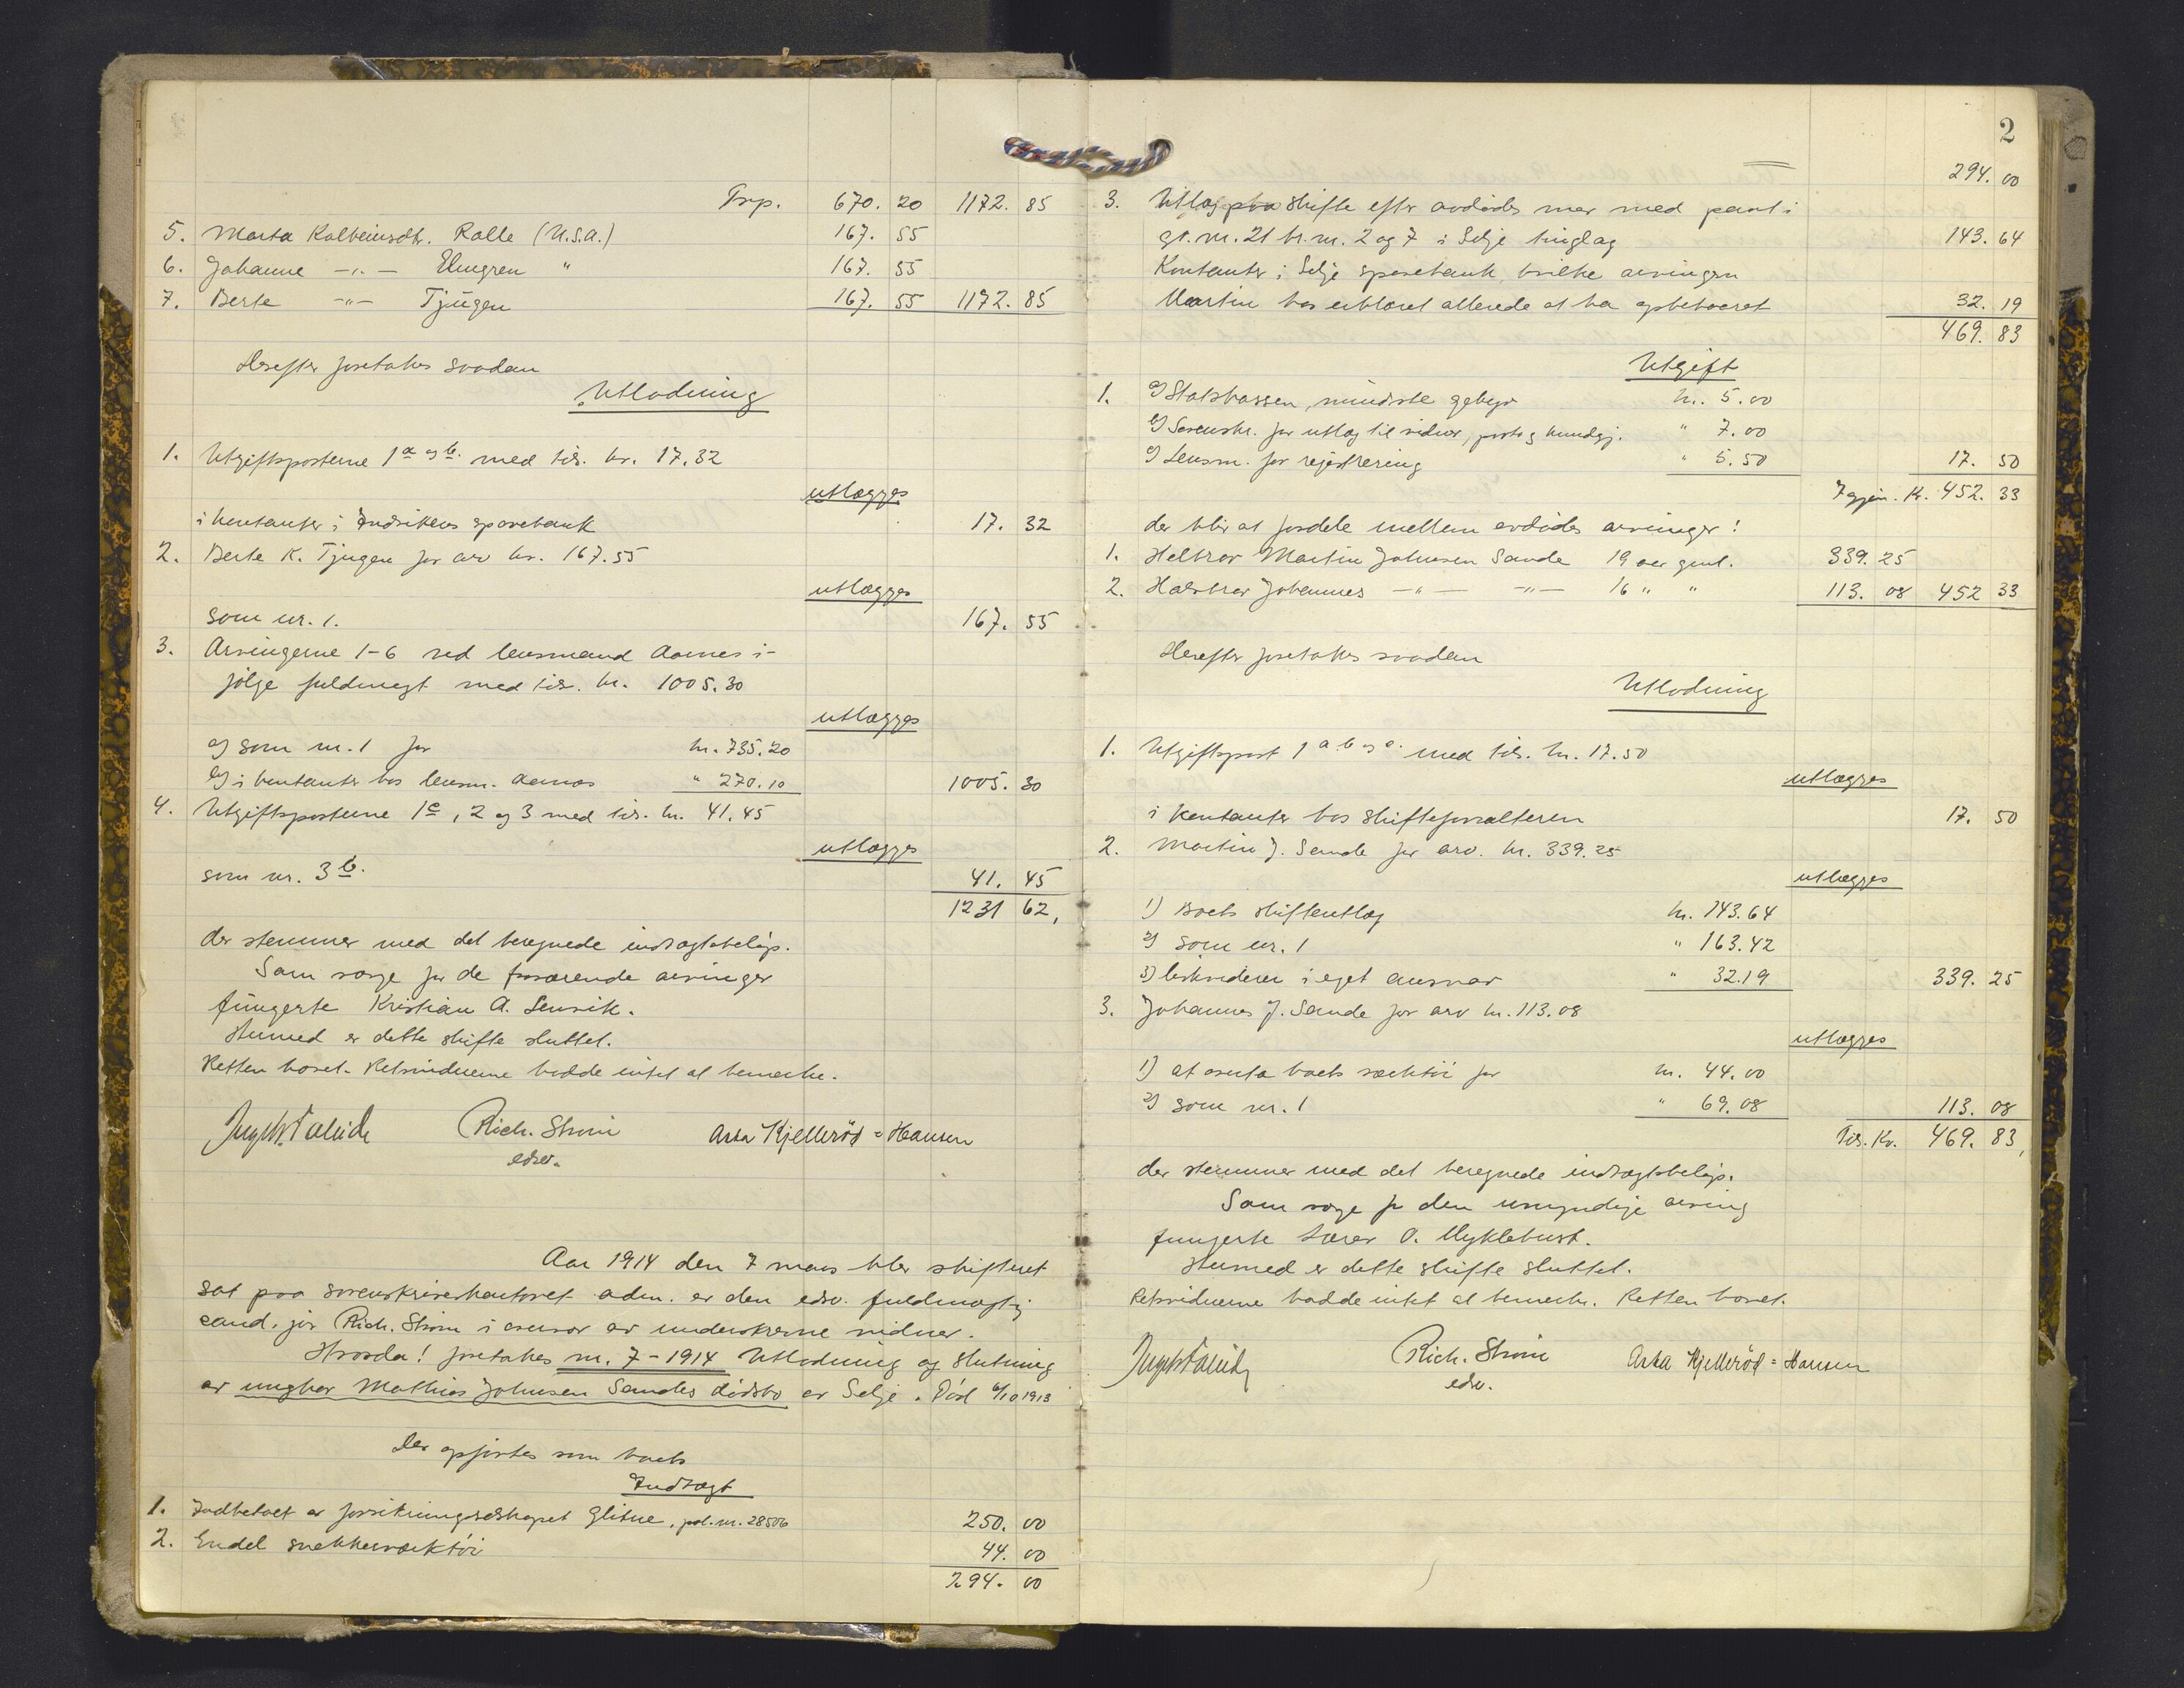 Trsp. 670. 20 1172. 85
5. Marta Kolbeinsdtr. Rolle (U.S.A.) 167. 55
6. Johanne -"- Elmgren " 167. 55
7. Berte -"- Tjugen 167. 55 1172. 85
Herefter foretakes saadan
Utlodning
1. Utgiftsposterne 1 a og b. med tils. kr. 17.32
utlægges
i kontanter i Indvikens sparebank 17. 32
2. Berte K. Tjugen for arv kr. 167.55
utlægges
som nr. 1. 167. 55
3. Arvingerne 1-6 ved lensmand Aarnes i-
følge fuldmagt med tils. kr. 1005.30
utlægges
a) som nr. 1 for kr. 735.20
b) i kontanter hos lensm. Aarnes " 270.10 1005. 30
4. Utgiftsposterne 1c, 2 og 3 med tils. kr. 41.45
utlægges
som nr. 3 b. 41. 45
1231 62,
der stemmer med det beregnede indtægtsbeløp.
Som verge for de fraværende arvinger
fungerte Kristian A. Lensvik.
Hermed er dette skifte sluttet.
Retten hævet. Retsvidnerne hadde intet at bemerke.
Rich. Strøm Asta Kjellerød=Hansen
edsv.
Aar 1914 den 7 mars blev skifteret
sat paa sorenskriverkontoret adm. av den edsv. fuldmægtig
cand. jur. Rich. Strøm i overvær av underskrevne vidner.
Hvorda! foretakes nr. 7-1914 Utlodning og slutning
av ungkar Mathias Johnsen Sandes dødsbo av Selje. Død 6/10 1913
Der opførtes som boets
Indtægt
1. Indbetalt av forsikringsselskapet Glitne, pol. nr. 28506 250. 00
2. Endel snekkerverktøi 44. 00
294. 00
2
294. 00
3. Utlæg paa skifte efter avdødes mor med pant i
gr. nr. 21 br. nr. 2 og 7 i Selje tinglag 143. 64
Kontanter i Selje sparebank, hvilke arvingen
Martin har erklæret allerede at ha opbebaaret 32. 19
469. 83
Utgift
1. a) Statskassen, mindste gebyr kr. 5.00
b) Sorenskr. for utlæg til vidner, porto og kundgj. " 7.00
c) Lensm. for registrering " 5.50 17. 50
Igjen. Kr. 452. 33
der blir at fordele mellem avdødes arvinger:
1. Helbror Martin Johnsen Sande 19 aar gml. 339. 25
2. Halvbror Johannes -"- -"- 16 " " 113. 08 452 33
Herefter foretakes saadan
Utlodning
1. Utgiftspost 1 a. b og c. med tils. kr. 17.50
utlægges
i kontanter hos skifteforvalteren 17. 50
2. Martin J. Sande for arv. kr. 339.25
utlægges
1) boets skifteutlæg kr. 143.64
2) som nr. 1 " 163.42
3) likviderer i eget ansvar " 32.19 339. 25
3. Johannes J. Sande for arv kr. 113.08
utlægges
1) at overta boets verktøi for kr. 44.00
2) som nr. 1 " 69.08 113. 08
Tils. Kr. 469. 83,
der stemmer med det beregnede indtægtsbeløp.
Som verge for den umyndige arving
fungerte lærer O. Myklebust.
Hermed er dette skifte sluttet.
Retsvidnerne hadde intet at bemerke. Retten hævet.
Rich. Strøm Asta Kjellerød=Hansen
edsv.